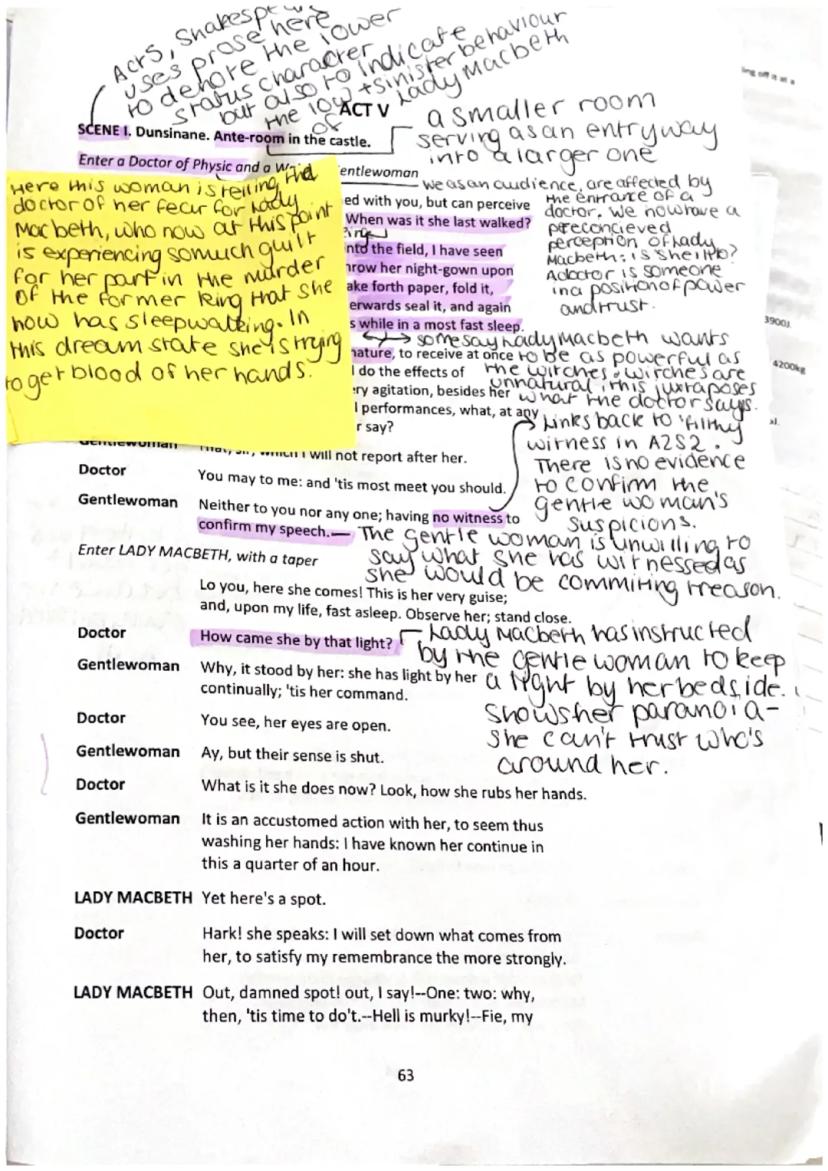 Act 5, Shakespe
uses prose here
to denote the lower
status character
but also to indicate
the low + sinister behaviour
of Lady Macbeth
ACT V
SCENE I. Dunsinane. Ante-room in the castle.
a smaller room
serving as an entryway
into a larger one
Enter a Doctor of Physic and a W entlewoman
Here this woman is telling the
doctor of her fear for Lady
Macbeth, who now at this point
is experiencing so much guilt
for her part in the murder
of the former king that she
now has sleepwalking. In
this dream state she is trying
to get blood of her hands.
we as an audience, are affected by
the entrance of a
doctor. We now have a
preconcieved
perception of Lady
Macbeth: is she ill?
A doctor is someone
in a position of power
and trust.
ed with you, but can perceive
When was it she last walked?
nto the field, I have seen
hrow her night-gown upon
ake forth paper, fold it,
erwards seal it, and again
s while in a most fast sleep.
some say Lady Macbeth wants
to be as powerful as
the witches. Witches are
unnatural, this juxtaposes
what the doctor says.
nature, to receive at once
l do the effects of
ry agitation, besides her
l performances, what, at any
r say?
Links back to 'filthy
witness in A2S2.
There is no evidence
to confirm the
gentle woman's
suspicions.
Gentlewoman That, sir, which I will not report after her.
Doctor You may to me: and 'tis most meet you should.
Gentlewoman Neither to you nor any one; having no witness to
confirm my speech.—
The gentle woman is unwilling to
say what she has witnessed as
she would be commiting treason.
Enter LADY MACBETH, with a taper
Lo you, here she comes! This is her very guise;
and, upon my life, fast asleep. Observe her; stand close.
Doctor How came she by that light?
Lady Macbeth has instructed
by the gentle woman to keep
a light by her bedside.
Shows her paranoia-
she can't trust who's
around her.
Gentlewoman Why, it stood by her: she has light by her
continually; 'tis her command.
Doctor You see, her eyes are open.
Gentlewoman Ay, but their sense is shut.
Doctor What is it she does now? Look, how she rubs her hands.
Gentlewoman It is an accustomed action with her, to seem thus
washing her hands: I have known her continue in
this a quarter of an hour.
LADY MACBETH Yet here's a spot.
Doctor Hark! she speaks: I will set down what comes from
her, to satisfy my remembrance the more strongly.
LADY MACBETH Out, damned spot! out, I say!--One: two: why,
then, 'tis time to do't.--Hell is murky!--Fie, my
63
3900J
4200kg